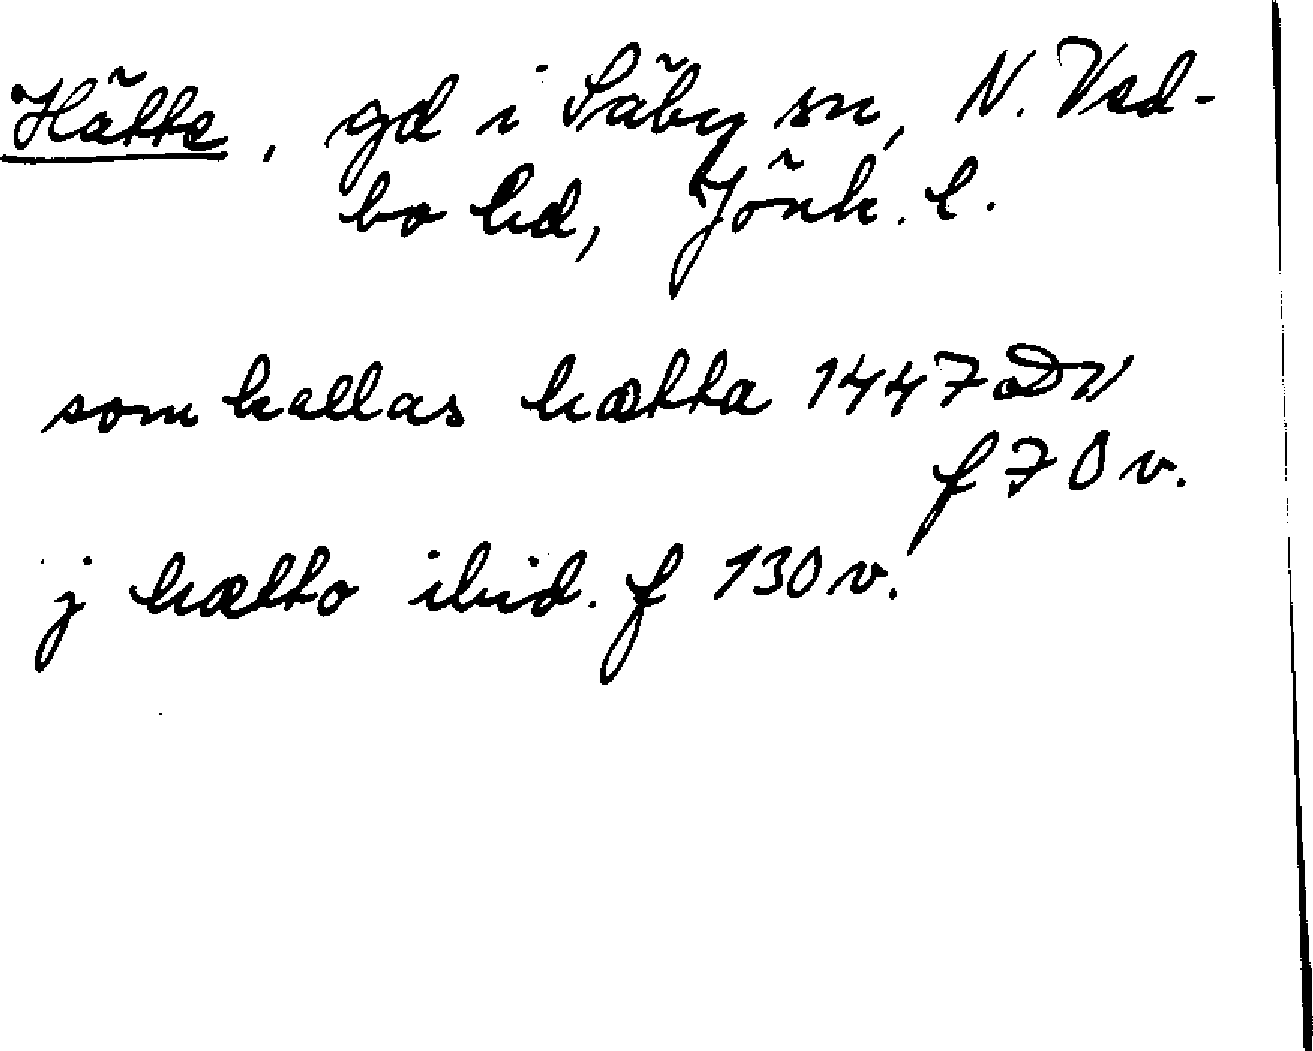 Hätte, gd i Säby sn, N. Ved-
bo hd, Jönk. l.
som kallas hætta 1447 DV
f 70 v.
j hætto ibid. f 130 v.